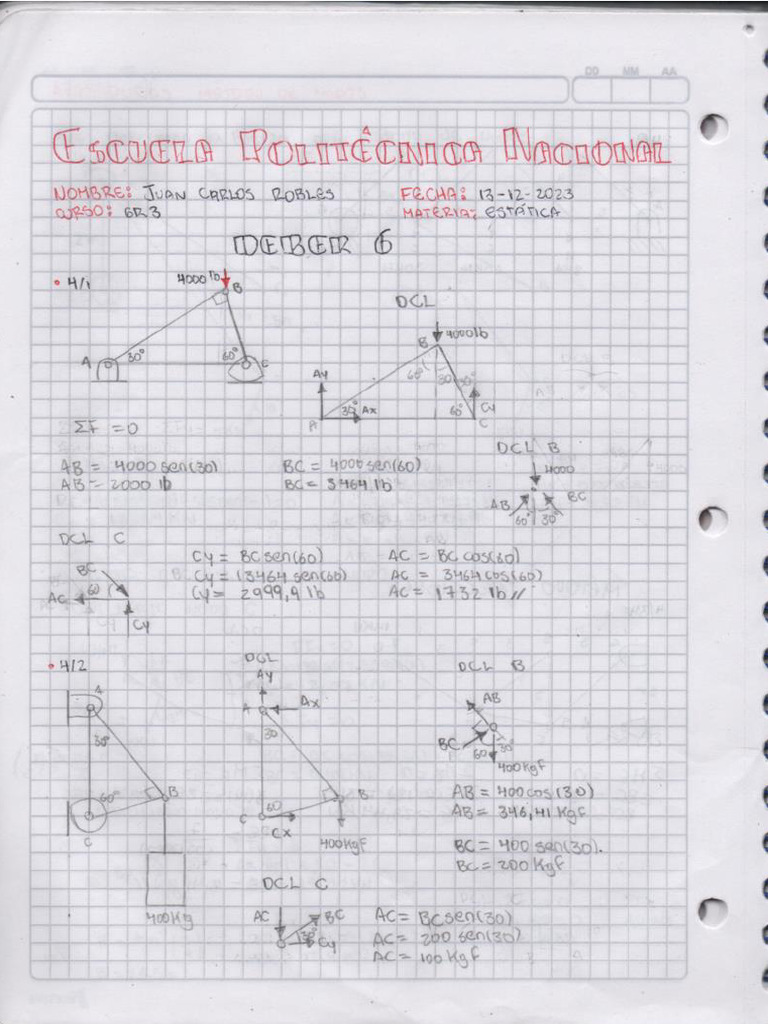 DD MM AA
ESCUELA POLITÉCNICA NACIONAL
NOMBRE: JUAN CARLOS ROBLES FECHA: 13-12-2023
CURSO: GR3 MATERIA: ESTÁTICA
DEBER 6
• 4/1
4000 lb
B
A 30° 60° C
DCL
B 4000lb
60° 30 30°
Ay
A 30° Ax 60° Cy C
ΣF = 0
AB = 4000 sen(30) BC = 4000 sen(60)
AB = 2000 lb BC = 3464 lb
DCL B
4000
AB BC
60° 30°
DCL C
BC
AC 60
Cy
Cy = BC sen(60) AC = BC cos(60)
Cy = (3464 sen(60) AC = 3464 cos(60)
Cy = 2999,9 lb AC = 1732 lb //
• 4/2
A
30°
60° B
C
400Kg
DCL
Ay
A Ax
30
60 B
C Cx
400Kgf
DCL B
AB
BC 60 30°
400Kgf
AB = 400 cos(30)
AB = 346,41 Kgf
BC = 400 sen(30).
BC = 200 Kgf
DCL C
AC BC
30° Cy
AC = BC sen(30)
AC = 200 sen(30)
AC = 100 Kgf